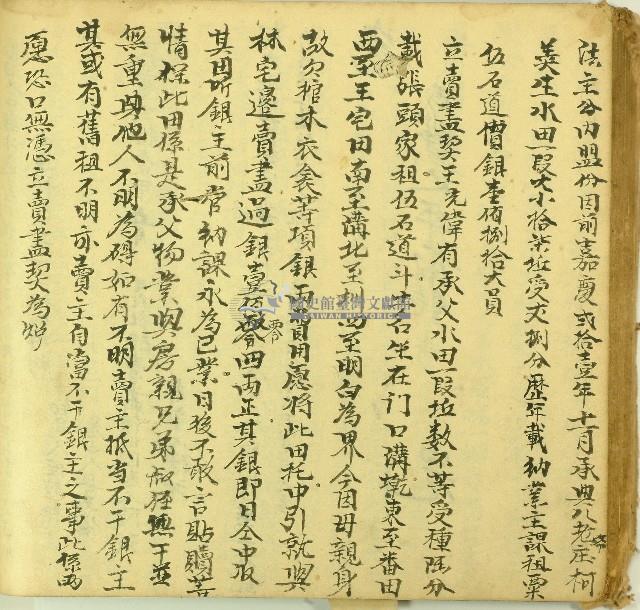 法主公內盟份因前嘉慶弍拾壹年十一月承典八老庄柯
美生水田一段大小拾柒坵受丈捌分歷年載納業主課租粟
伍石道價銀壹佰捌拾大員
立賣盡契王光偉有承父水田一段坵數不等受種陸分
載張頭家租伍石道斗坐在门口溝墘東至番田
西至王宅田南至溝北至明白為界今因母親身
故欠棺木衣衾等項銀兩費用愿將此田托中引就與
林宅邊賣盡過銀壹佰零四両正其銀即日仝中收
其田听銀主前管納課永為己業日後不敢言貼贖等
情保此田係是承父物業與房親兄弟叔侄無干並
無重典他人不明為碍如有不明賣主抵当不干銀主
其或有舊租不明亦賣主自當不干銀主之事此係両
愿恐口無憑立賣盡契為炤
國史館臺灣文獻館
TAIWAN HISTORICA